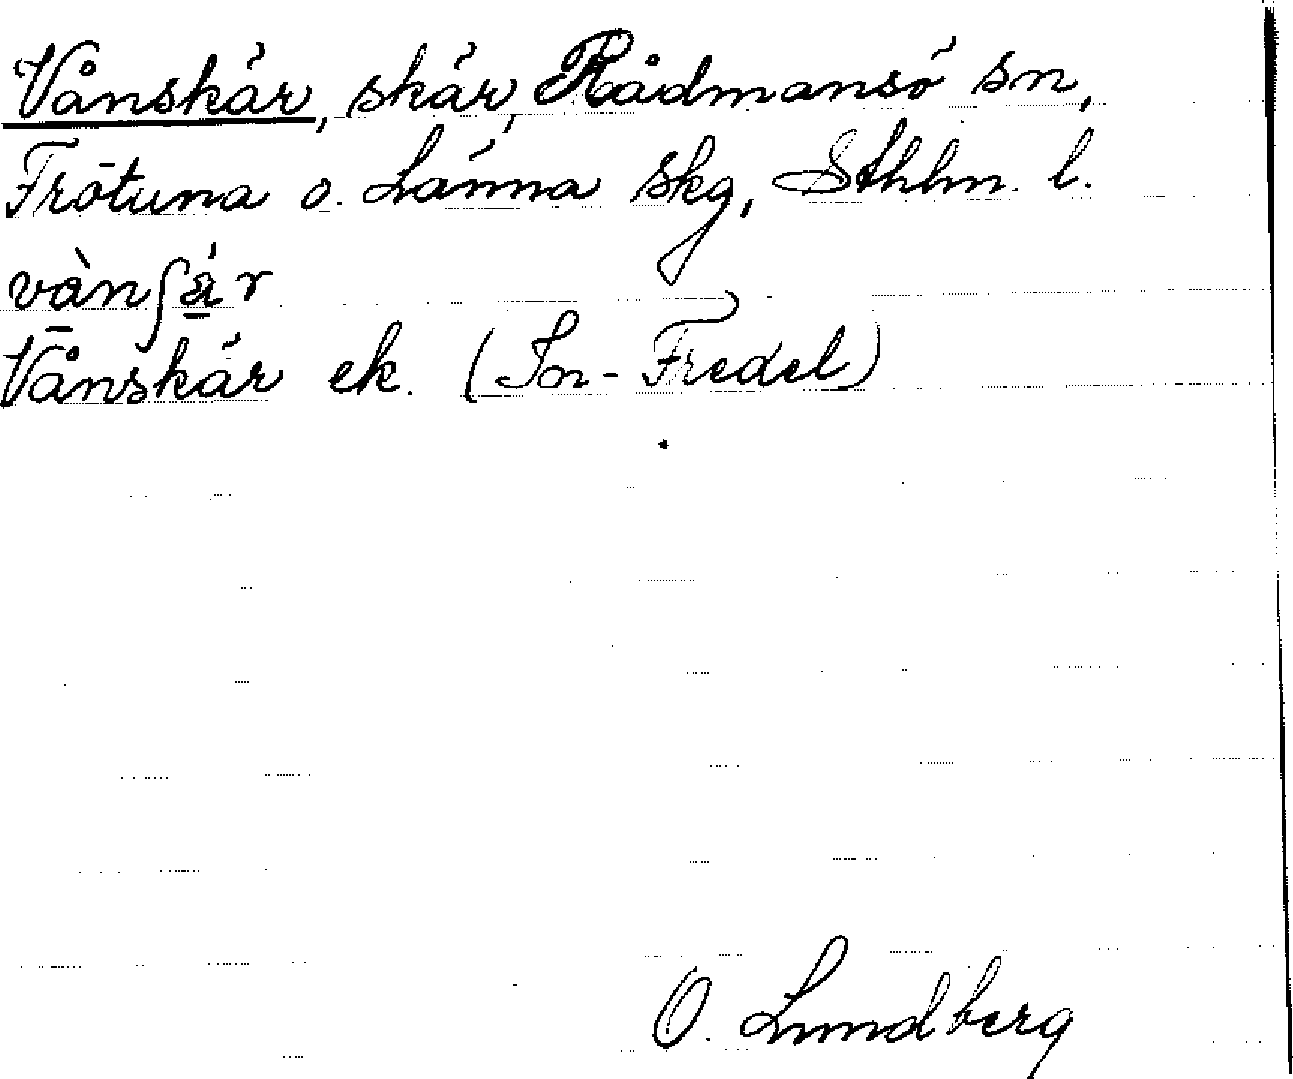 Vånskär, skär, Rådmansö sn,
Frötuna o. Länna skg, Sthlm. l.
vànʃä́r
Vånskär ek. (Sn-Fredel)
O. Lundberg